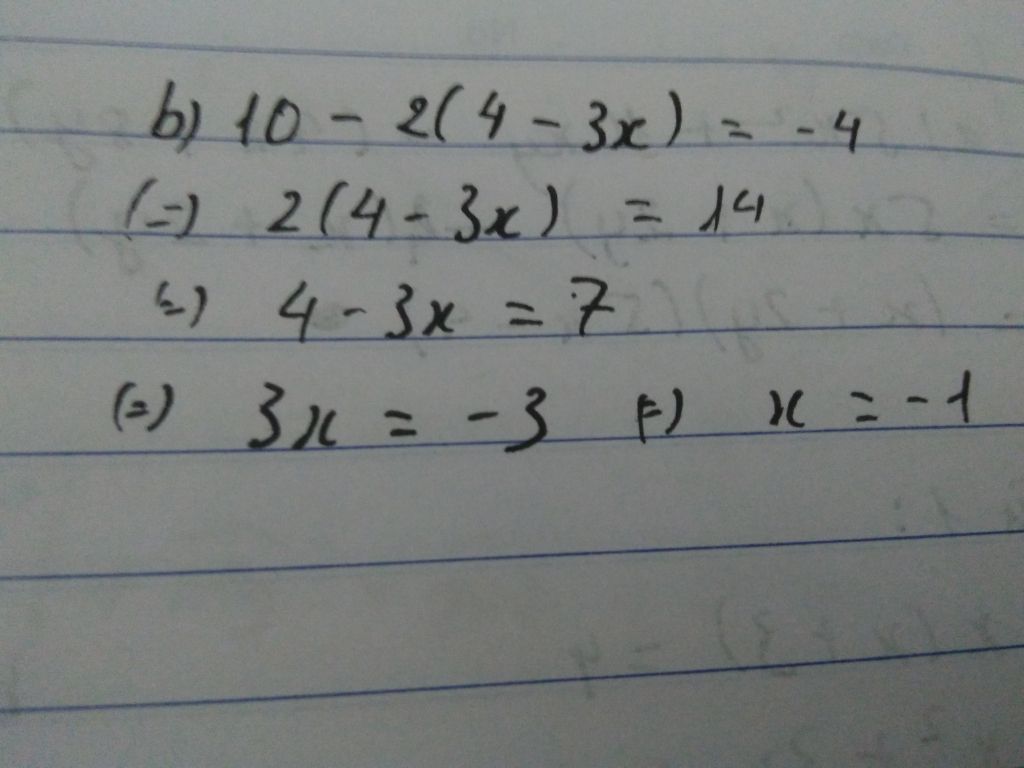 b) 10 - 2(4 - 3x) = -4
(=) 2(4 - 3x) = 14
(=) 4 - 3x = 7
(=) 3x = -3 (=) x = -1